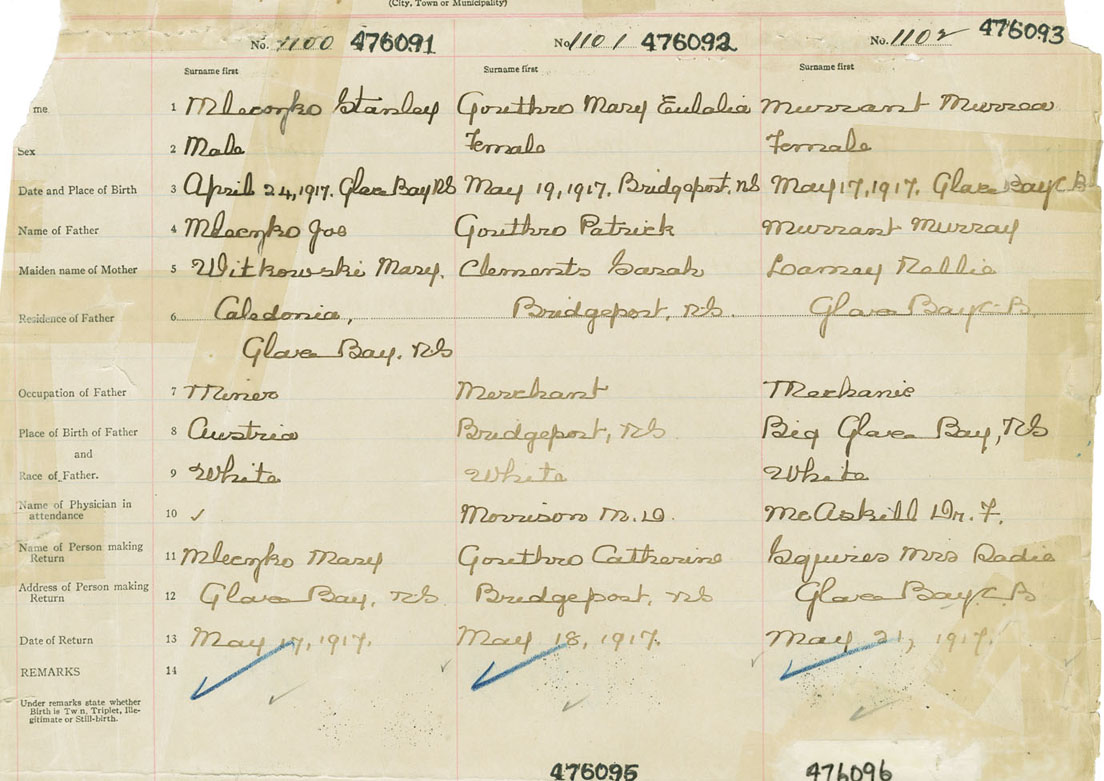 (City, Town or Municipality)
No. 1100 476091 No. 1101 476092 No. 1102 476093
Surname first Surname first Surname first
me 1 Mleczko Stanley Gouthro Mary Eulalia Murrant Murrea
Sex 2 Male Female Female
Date and Place of Birth 3 April 24, 1917. Glace Bay NS May 19, 1917. Bridgeport, NS May 17, 1917. Glace Bay C.B
Name of Father 4 Mleczko Joe Gouthro Patrick Murrant Murray
Maiden name of Mother 5 Witkowski Mary. Clements Sarah Lamey Nellie
Residence of Father 6 Caledonia, Bridgeport, NS. Glace Bay C.B.
Glace Bay. NS
Occupation of Father 7 Miner Merchant Mechanic
Place of Birth of Father 8 Austria Bridgeport, NS Big Glace Bay, NS
and
Race of Father. 9 White White White
Name of Physician in
attendance 10 ✓ Morrison M.D. McAskill Dr. F.
Name of Person making
Return 11 Mleczko Mary Gouthro Catherine Squires Mrs Sadie
Address of Person making
Return 12 Glace Bay, NS Bridgeport, NS Glace Bay C.B
Date of Return 13 May 17, 1917. May 18, 1917. May 21, 1917.
REMARKS 14
Under remarks state whether
Birth is Twin, Triplet, Ille-
gitimate or Still-birth.
476095 476096